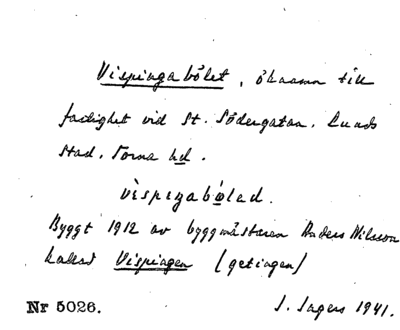 Vispingabölet, öknamn till
fastighet vid St. Södergatan, Lunds
stad, Torna hd.
vìspiŋabø̀led.
Byggt 1912 av byggmästaren Anders Nilsson
kallad Vispingen (getingen)
Nr 5026. I. Ingers 1941.